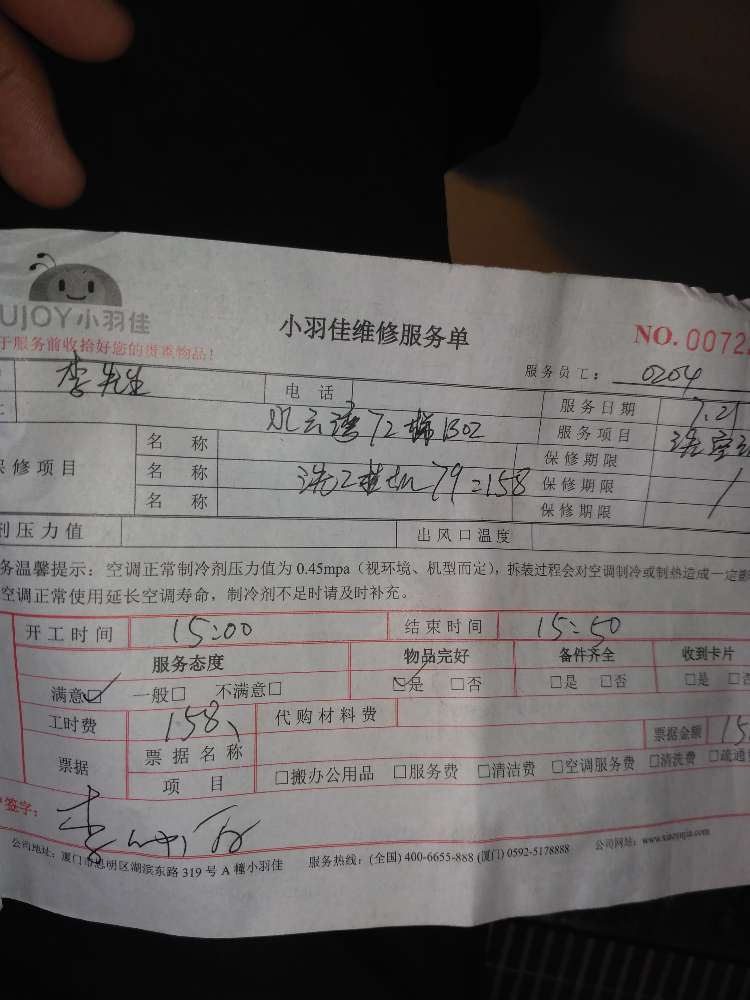 UJOY小羽佳
小羽佳维修服务单
NO. 0072
于服务前收拾好您的贵重物品!
服务员工: 0204
李先生
电 话
服务日期 7.21
72梯1302
服务项目 洗空
保修项目
名 称
保修期限
名 称 洗2挂机 79=158
保修期限 /
名 称
保修期限
剂压力值
出风口温度
务温馨提示:空调正常制冷剂压力值为 0.45mpa(视环境、机型而定),拆装过程会对空调制冷或制热造成一定
空调正常使用延长空调寿命,制冷剂不足时请及时补充。
开工时间 15:00 结束时间 15:50
服务态度 物品完好 备件齐全 收到卡片
满意☑ 一般□ 不满意□ ☑是 □否 □是 □否 □是 □否
工时费 158、 代购材料费
票据金额 15
票据
票据名称
项 目 □搬办公用品 □服务费 □清洁费 □空调服务费 □清洗费 □疏通
签字: 李
公司地址:厦门市思明区湖滨东路 319 号 A 幢小羽佳 服务热线:(全国) 400-6655-888 (厦门) 0592-5178888 公司网站:www.xiaoyujia.com